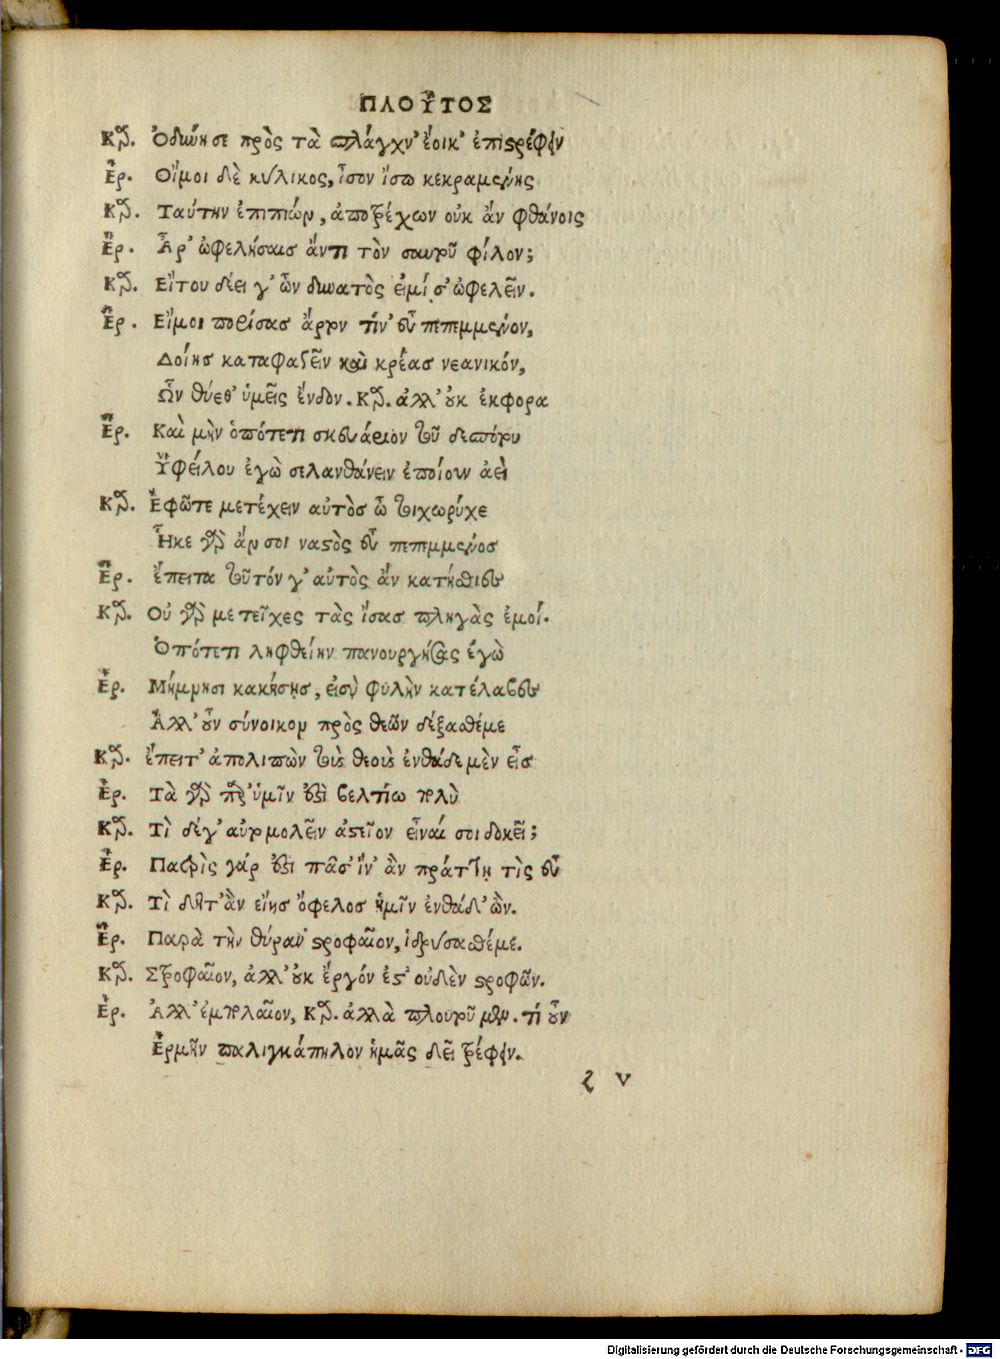 ΠΛΟΥ͂ΤΟΣ
Καρ. Ὀδύνησε πρὸς τὰ σπλάγχν' ἔοικ' ἐπιστρέφειν
Ἑρ. Οἴμοι δὲ κύλικος, ἴσον ἴσῳ κεκραμένης
Καρ. Ταύτην ἐπιπιὼν, ἀποτρέχων οὐκ ἂν φθάνοις
Ἑρ. Ἆρ' ὠφελήσαις ἄντι τὸν σαυτοῦ φίλον;
Καρ. Εἴτου δέει γ' ὧν δυνατὸς εἰμί σ' ὠφελεῖν.
Ἑρ. Εἴμοι πορίσας ἄρτον τίν' εὖ πεπεμμένον,
Δοίης καταφαγεῖν καὶ κρέας νεανικόν,
Ὧν θύεθ' ὑμεῖς ἔνδον. Καρ. ἀλλ' οὐκ ἐκφορα
Ἑρ. Καὶ μὴν ὁπότετι σκευάριον τοῦ δεσπότου
Ὑφείλου ἐγὼ σελανθάνειν ἐποίουν ἀεὶ
Καρ. Ἐφῶτε μετέχειν αὐτὸς ὦ τοιχωρύχε
Ἧκε γὰρ ἄν σοι ναστὸς εὖ πεπεμμένος
Ἑρ. ἔπειτα τοῦτόν γ' αὐτὸς ἂν κατήσθιες
Καρ. Οὐ γὰρ μετεῖχες τὰς ἴσας πληγὰς ἐμοί.
Ὁπότετι ληφθείην πανουργήσας ἐγὼ
Ἑρ. Μήμνησι κακήσῃς, εἰσὺ φυλὴν κατέλαβες
Ἀλλ' οὖν σύνοικον πρὸς θεῶν δέξασθέμε
Καρ. ἔπειτ' ἀπολιπὼν τοὺς θεοὺς ἐνθάδε μὲν εἶς
Ἑρ. Τὰ γὰρ παρ' ὑμῖν ἐστὶ βελτίω πολὺ
Καρ. Τὶ δέγ' αὐτομολεῖν ἀστεῖον εἶναί σοι δοκεῖ;
Ἑρ. Πατρὶς γάρ ἐστι πᾶσ' ἵν' ἂν πράττῃ τὶς εὖ
Καρ. Τὶ δῆτ' ἂν εἴης ὄφελος ἡμῖν ἐνθάδ' ὤν.
Ἑρ. Παρὰ τὴν θύραν στροφαῖον, ἱδρυσασθέμε.
Καρ. Στροφαῖον, ἀλλ' οὐκ ἔργόν ἐστ' οὐδὲν στροφῶν.
Ἑρ. Ἀλλ' ἐμπολαῖον, Καρ. ἀλλὰ πλουτοῦμεν. τί οὖν
Ἑρμῆν παλιγκάπηλον ἡμᾶς δεῖ τρέφειν.
ζ v
Digitalisierung gefördert durch die Deutsche Forschungsgemeinschaft - DFG